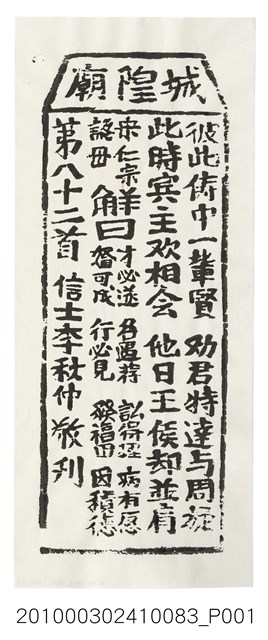 城隍廟
彼此儔中一輩賢 勸君特達与周旋
此時賓主欢相会 他日王侯却並肩
宋仁宗認母
解曰 才必達 名遇薦 訟得理 病有愿 婚可成 行必見 發福田 因積德
第八十二首 信士李社仲敬刋
201000302410083_P001